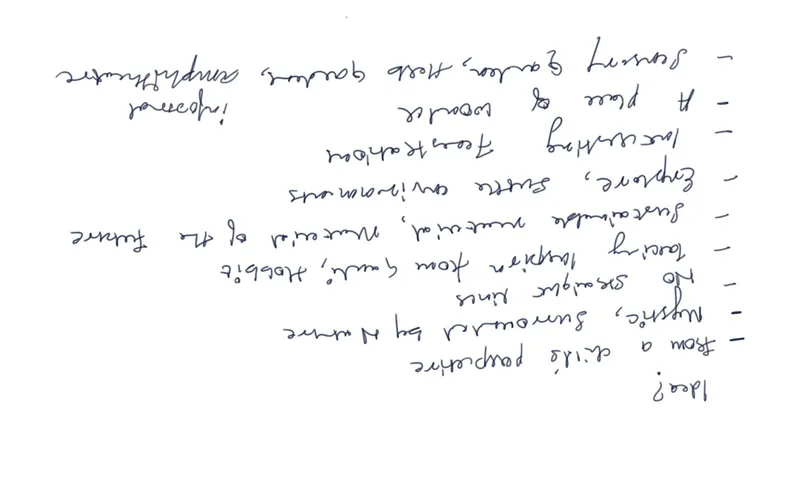 Idea?
- from a child's perspective
- Mystic, surrounded by Nature
- No straight lines
- Inspirn from Gaudi, Hobbit
- Sustainable material, Material of the future
- Explore, subtle environments
- Interesting Fenestrations
- A place of wonder
- Sensory Garden, Herb garden, informal amphitheatre